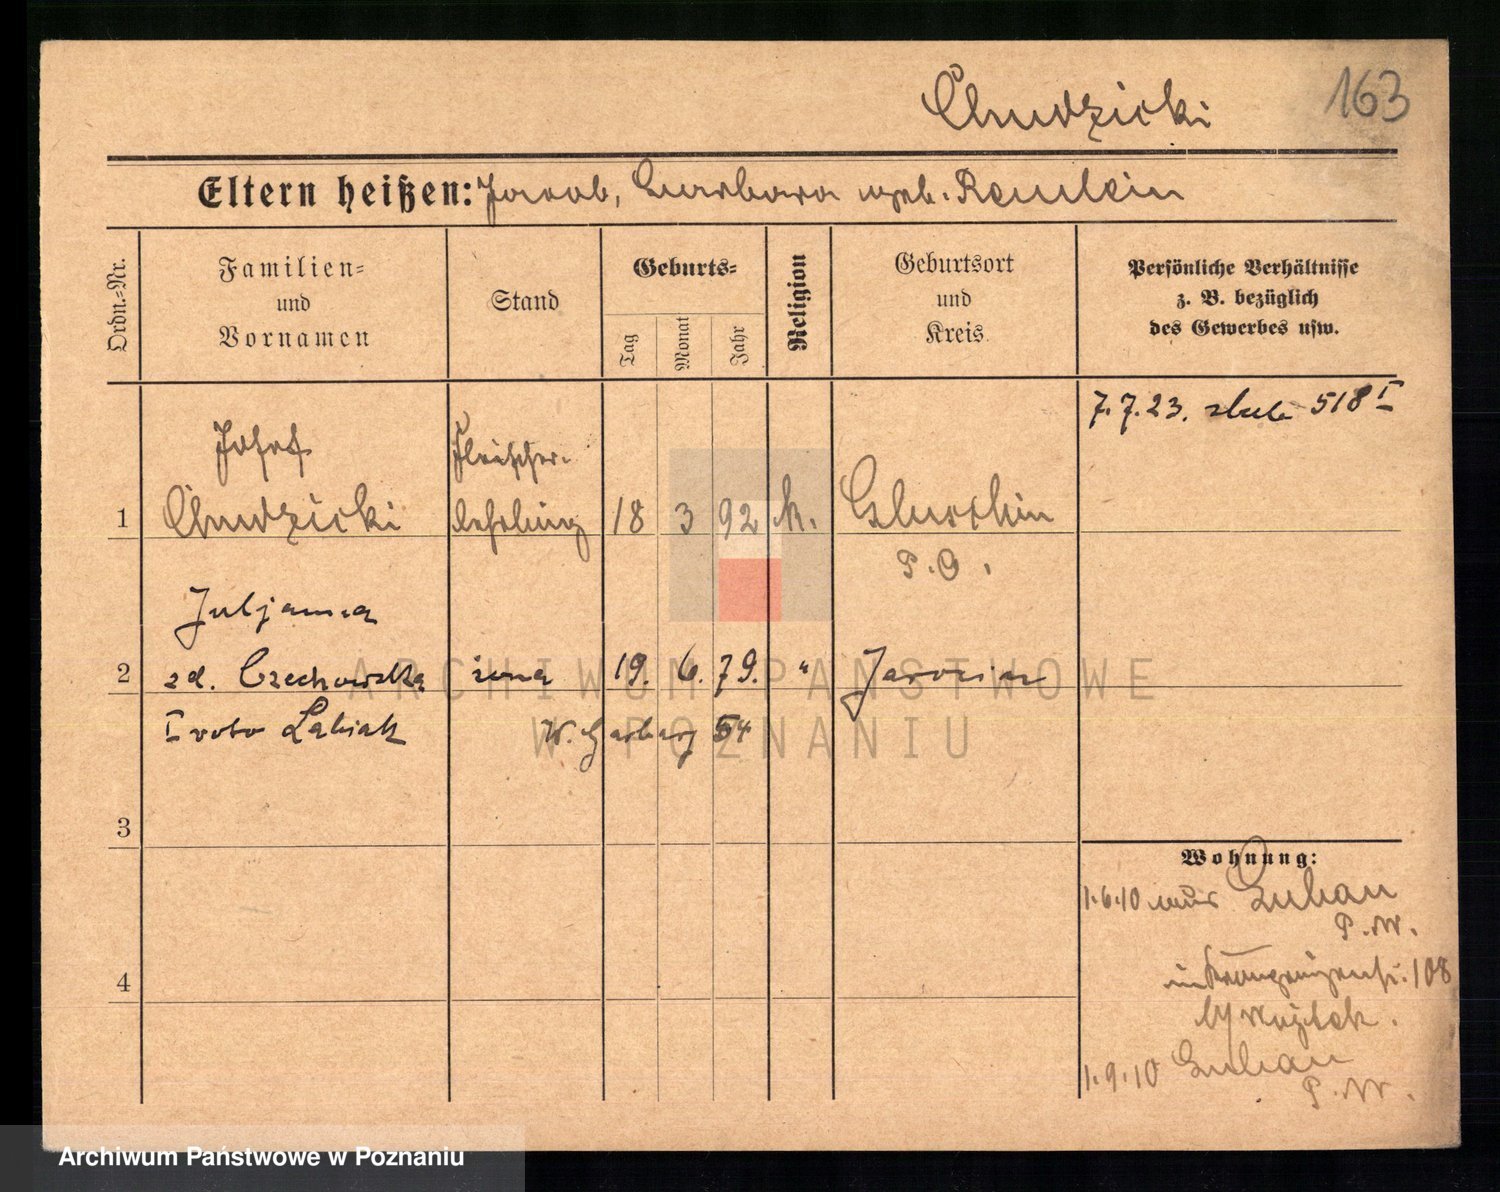 Chudzicki
163
Eltern heißen: Jacob, Barbara geb. Remlein
Ordn.-Nr.
Familien- und Vornamen
Stand
Geburts-
Tag
Monat
Jahr
Religion
Geburtsort und Kreis
Persönliche Verhältnisse z. B. bezüglich des Gewerbes usw.
7.7.23. 518 I
Josef
Fleischer-
1 Chudzicki lehrling 18 3 92 k. Gluschin
P. O.
Juljanna
2 zd. Czechowska żona 19. 6. 79. " Jarocin
I voto Labiak W. Garbary 54
3
Wohnung:
1.6.10 aus Luban
P. W.
4
in Kronprinzenstr. 108
b/ Wojtek.
1.9.10 Luban
P. W.
ARCHIWUM PAŃSTWOWE
W POZNANIU
Archiwum Państwowe w Poznaniu